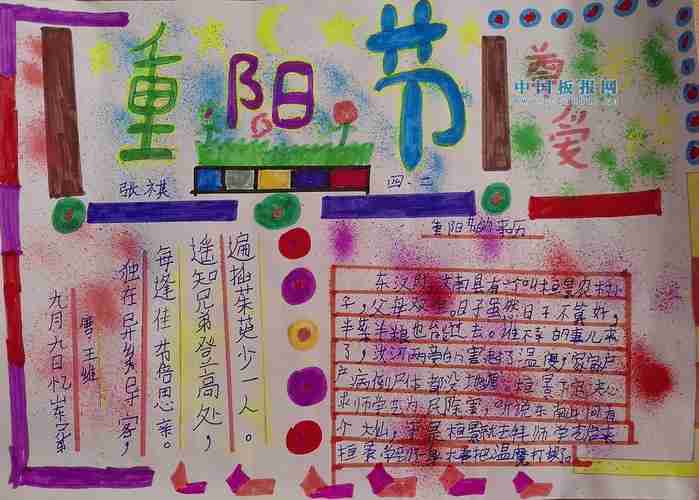 重阳节
尊
爱
中国板报网
张祺
四、二
重阳节的来历
九月九日忆山东兄
唐 王维
独在异乡异客，
每逢佳节倍思亲。
遥知兄弟登高处，
遍插茱萸少一人。
东汉时，汝南县有一个叫桓景农村小
子，父母双 日子虽然 日子不算好，
半菜半粮也能过去。 不幸的事儿来
了，汝河两岸 害起了瘟疫，家家户
户病倒尸体都没 桓景下定决心
求师学艺为民除害，听说东南山中有
个大仙， 桓景就去拜师学艺
桓景 把瘟魔打败了。